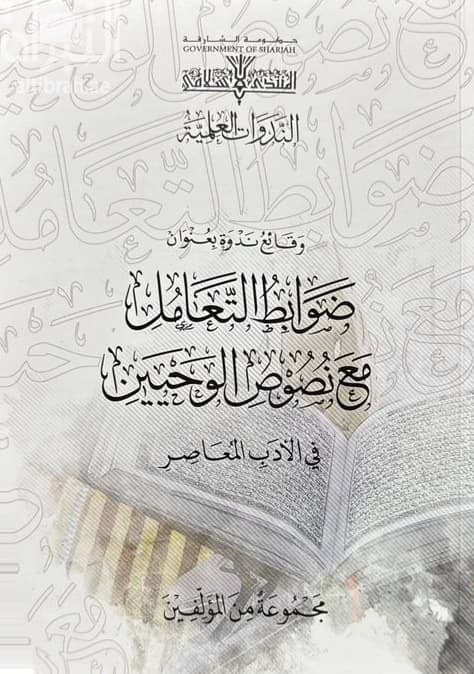 حكومة الشارقة
GOVERNMENT OF SHARJAH
المنتدى الإسلامي
النَّدَوَاتُ العِلْمِيَّةُ
وَقَائِعُ نَدْوَةٍ بِعُنْوَانِ
ضَوَابِطُ التَّعَامُلِ
مَعَ نُصُوصِ الوَحْيَيْنِ
فِي الأَدَبِ المُعَاصِرِ
مَجْمُوعَةٌ مِنَ المُؤَلِّفِينَ